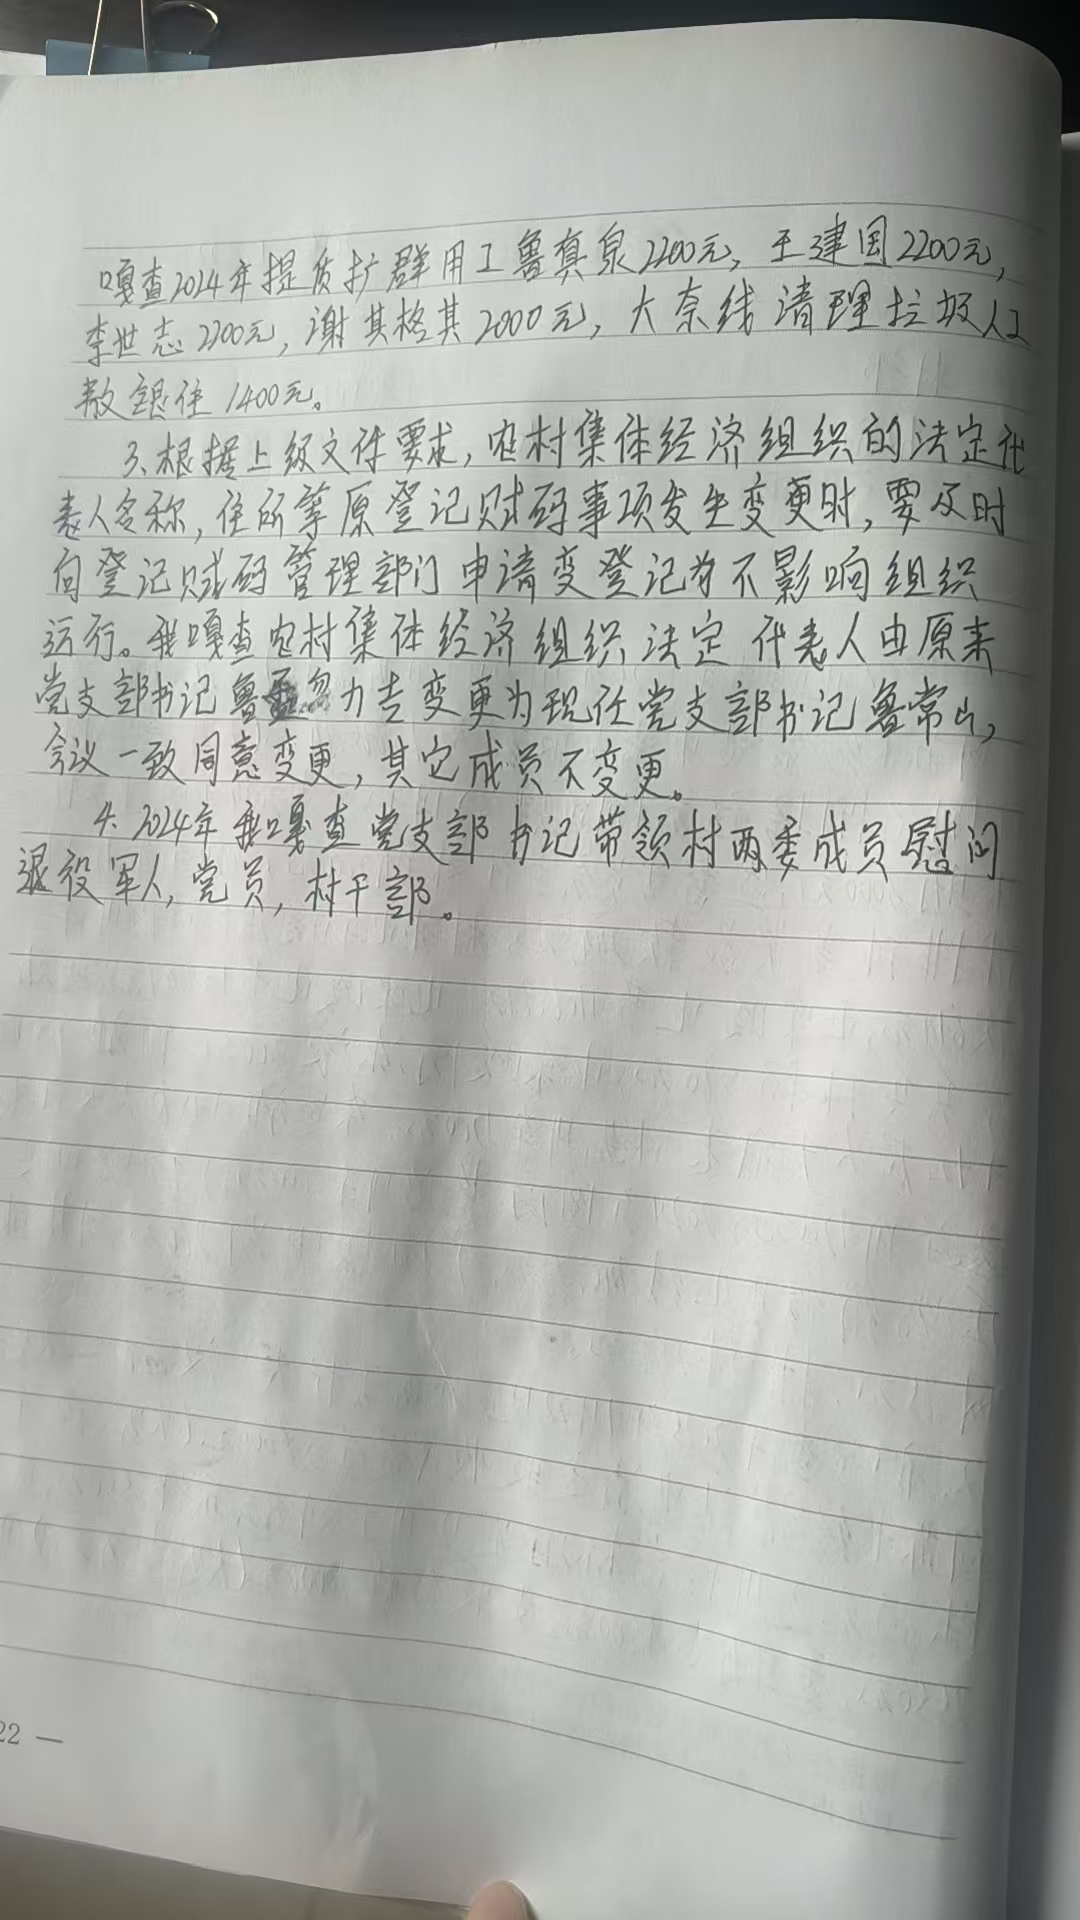 嘎查2024年提质扩群用工鲁真泉2200元，王建国2200元，
李世志2200元，谢其格其2000元，大奈线清理垃圾人工
敖银住1400元。
3、根据上级文件要求，农村集体经济组织的法定代
表人名称，住所等原登记赋码事项发生变更时，要及时
向登记赋码管理部门申请变登记为不影响组织
运行。我嘎查农村集体经济组织法定代表人由原来
党支部书记鲁忽力吉变更为现任党支部书记鲁常山，
会议一致同意变更，其它成员不变更。
4、2024年我嘎查党支部书记带领村两委成员慰问
退役军人，党员，村干部。
22 —